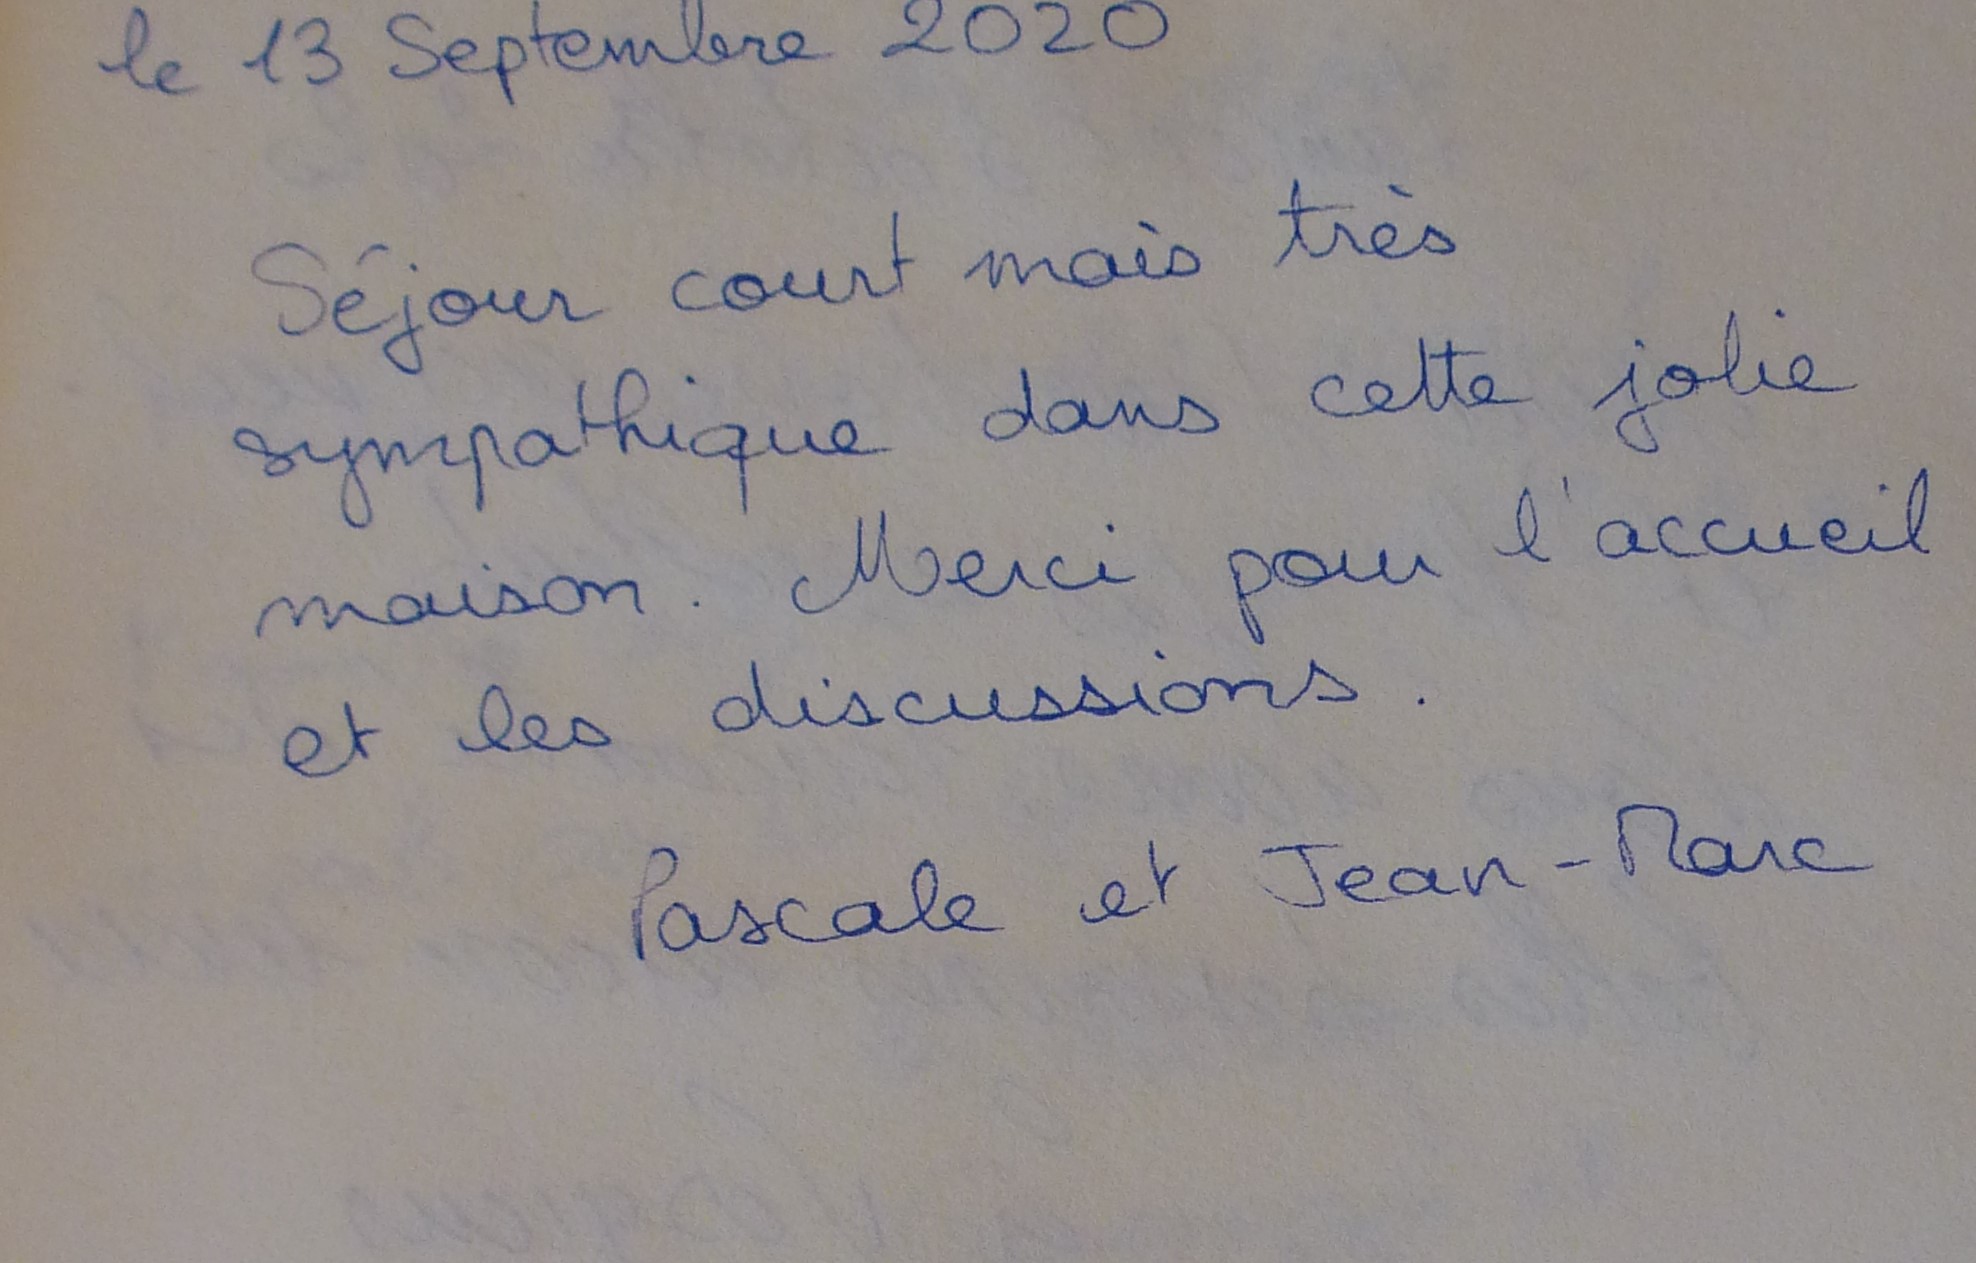 le 13 Septembre 2020
Séjour court mais très
sympathique dans cette jolie
maison. Merci pour l'accueil
et les discussions.
Pascale et Jean-Marc